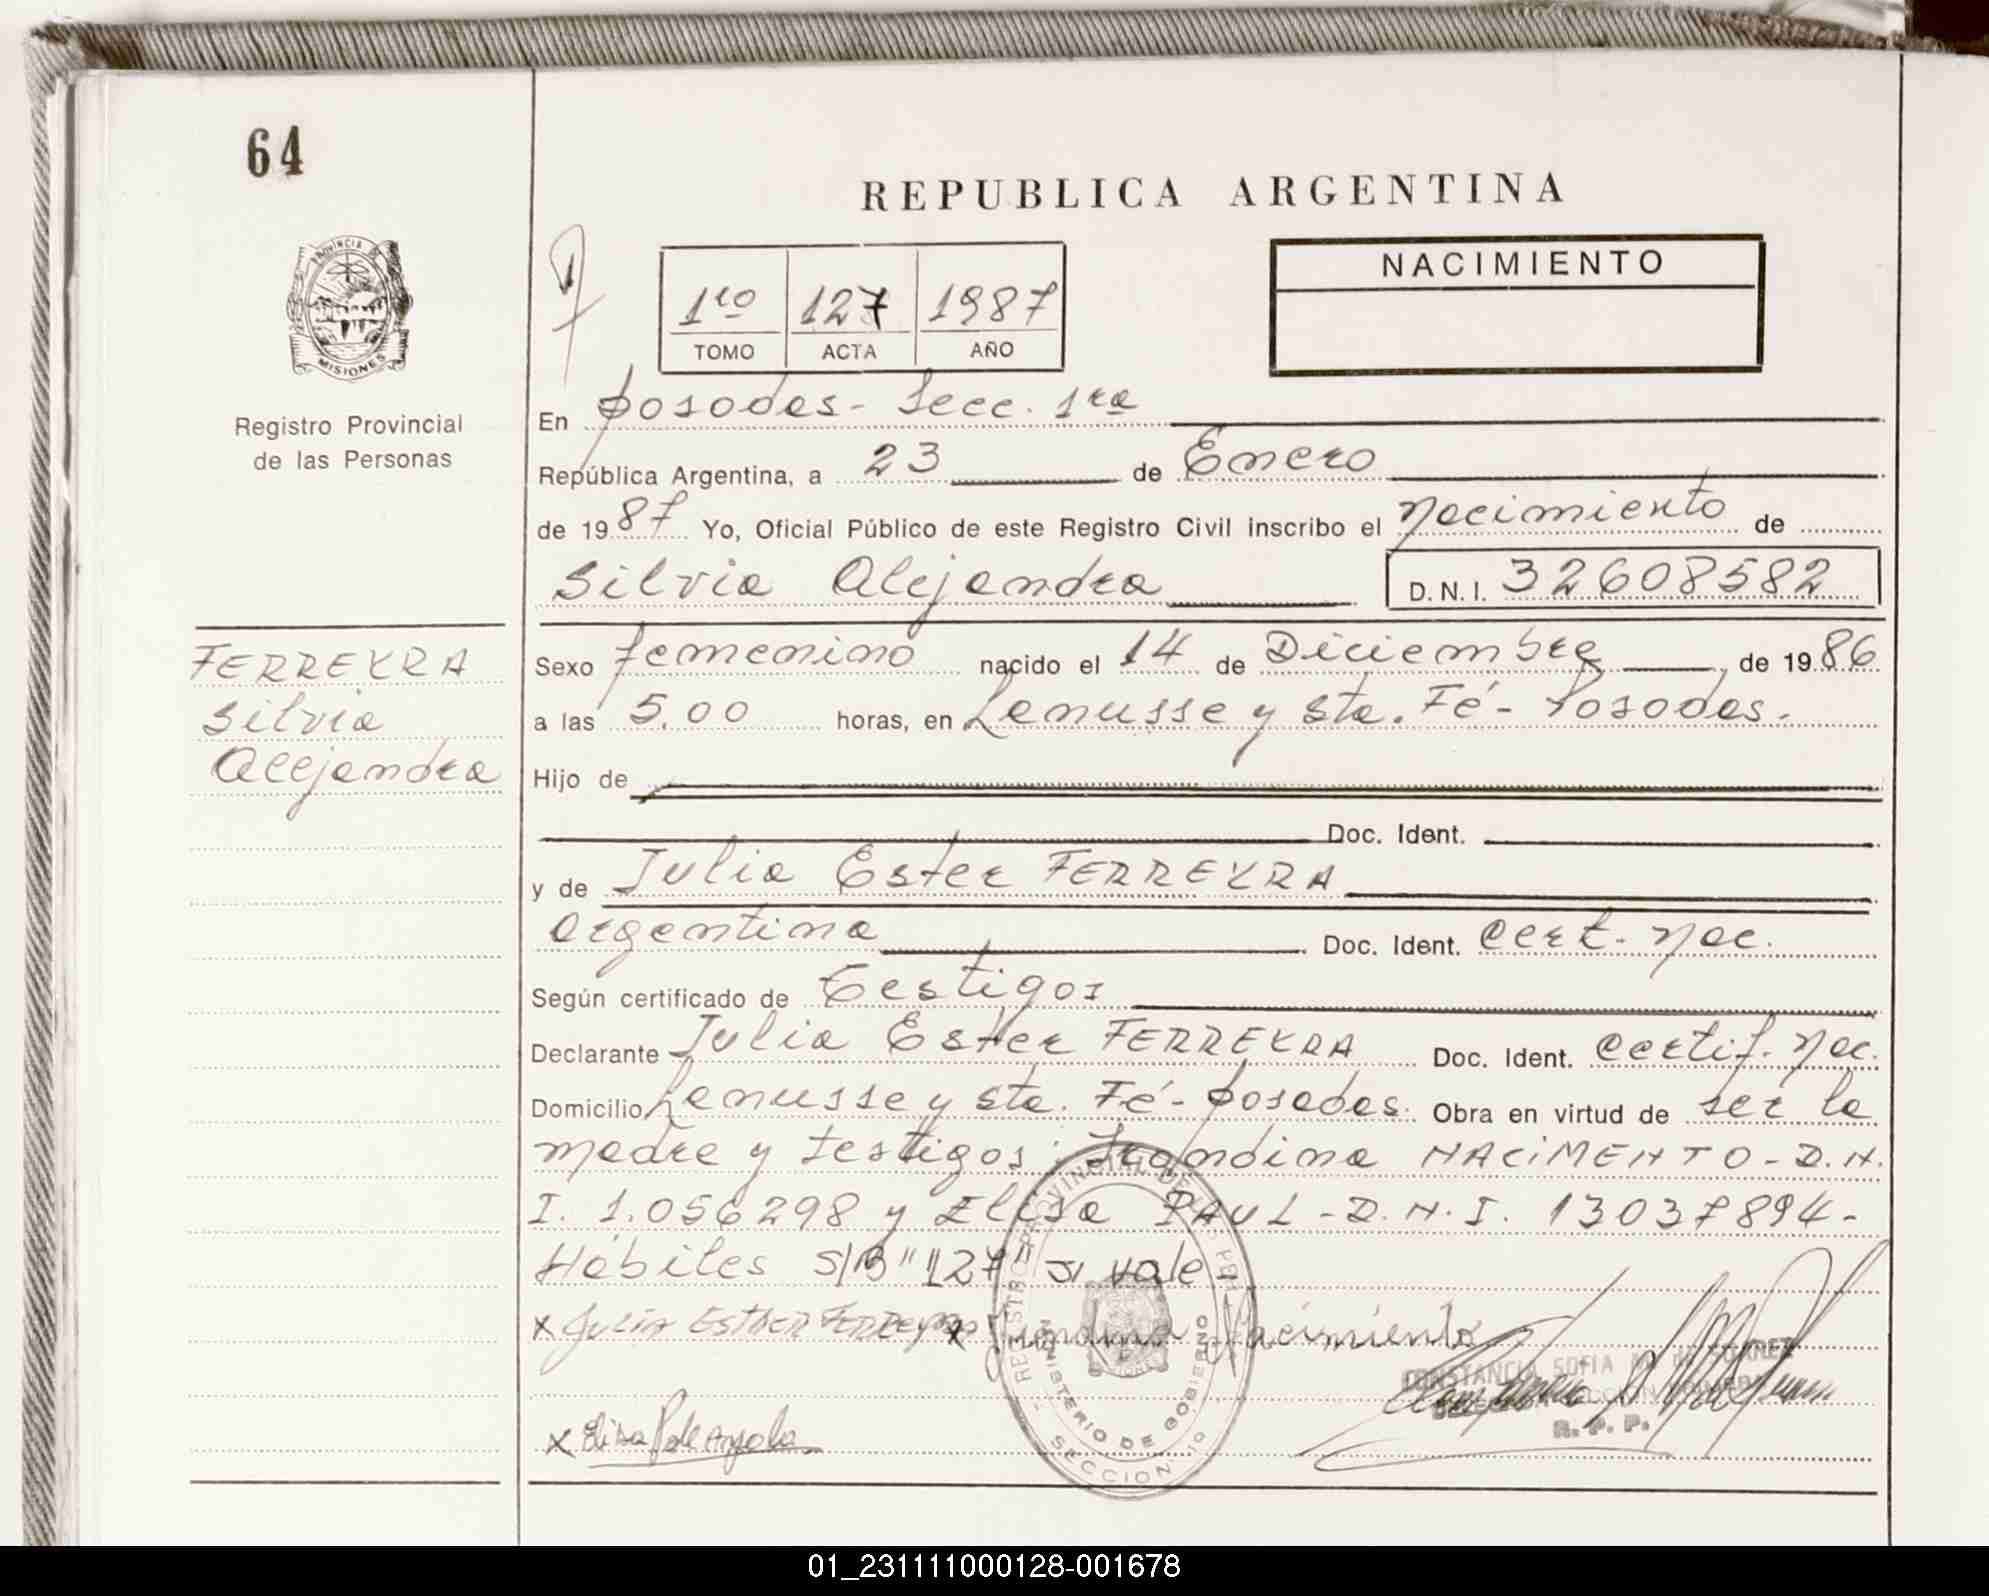 64
REPUBLICA ARGENTINA
PROVINCIA DE
MISIONES
1ro 127 1987
TOMO ACTA AÑO
NACIMIENTO
Registro Provincial
de las Personas
En posadas - Secc. 1ra
República Argentina, a 23 de Enero
de 1987 Yo, Oficial Público de este Registro Civil inscribo el Nacimiento de
Silvia Alejandra D.N.I. 32608582
FERREYRA
Silvia
Alejandra
Sexo femenino nacido el 14 de Diciembre de 1986
a las 5,00 horas, en Lanusse y Sta. Fé - Posadas.
Hijo de
Doc. Ident.
y de Julia Ester FERREYRA
argentina Doc. Ident. Cert. Nac.
Según certificado de Testigos
Declarante Julia Ester FERREYRA Doc. Ident. Certif. Nac.
Domicilio Lanusse y Sta. Fé - posadas. Obra en virtud de ser la
madre y testigos: NACIMENTO - D.N.
I. 1.056298 y Elisa PAUL - D.N.I. 13037894 -
Hábiles S/B "127" si vale -
x JULIA ESTHER FERREYRA x Nacimiento
CONSTANCIA SOFIA
R. P. P.
x Elisa P de Ayala
MINISTERIO DE GOBIERNO
SECCION 1a
01_231111000128-001678